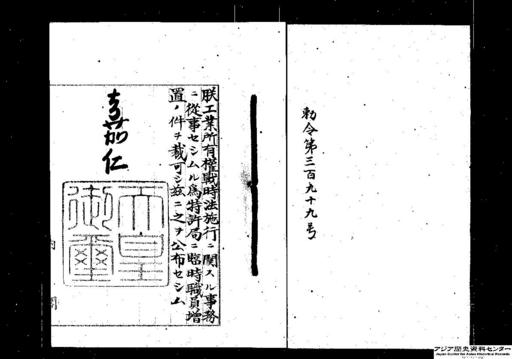 勅令第三百九十九号
朕工業所有權戰時法施行ニ關スル事務
ニ從事セシムル爲特許局ニ臨時職員増
置ノ件ヲ裁可シ茲ニ之ヲ公布セシム
嘉仁
天皇
御璽
内閣
アジア歴史資料センター
Japan Center for Asian Historical Records